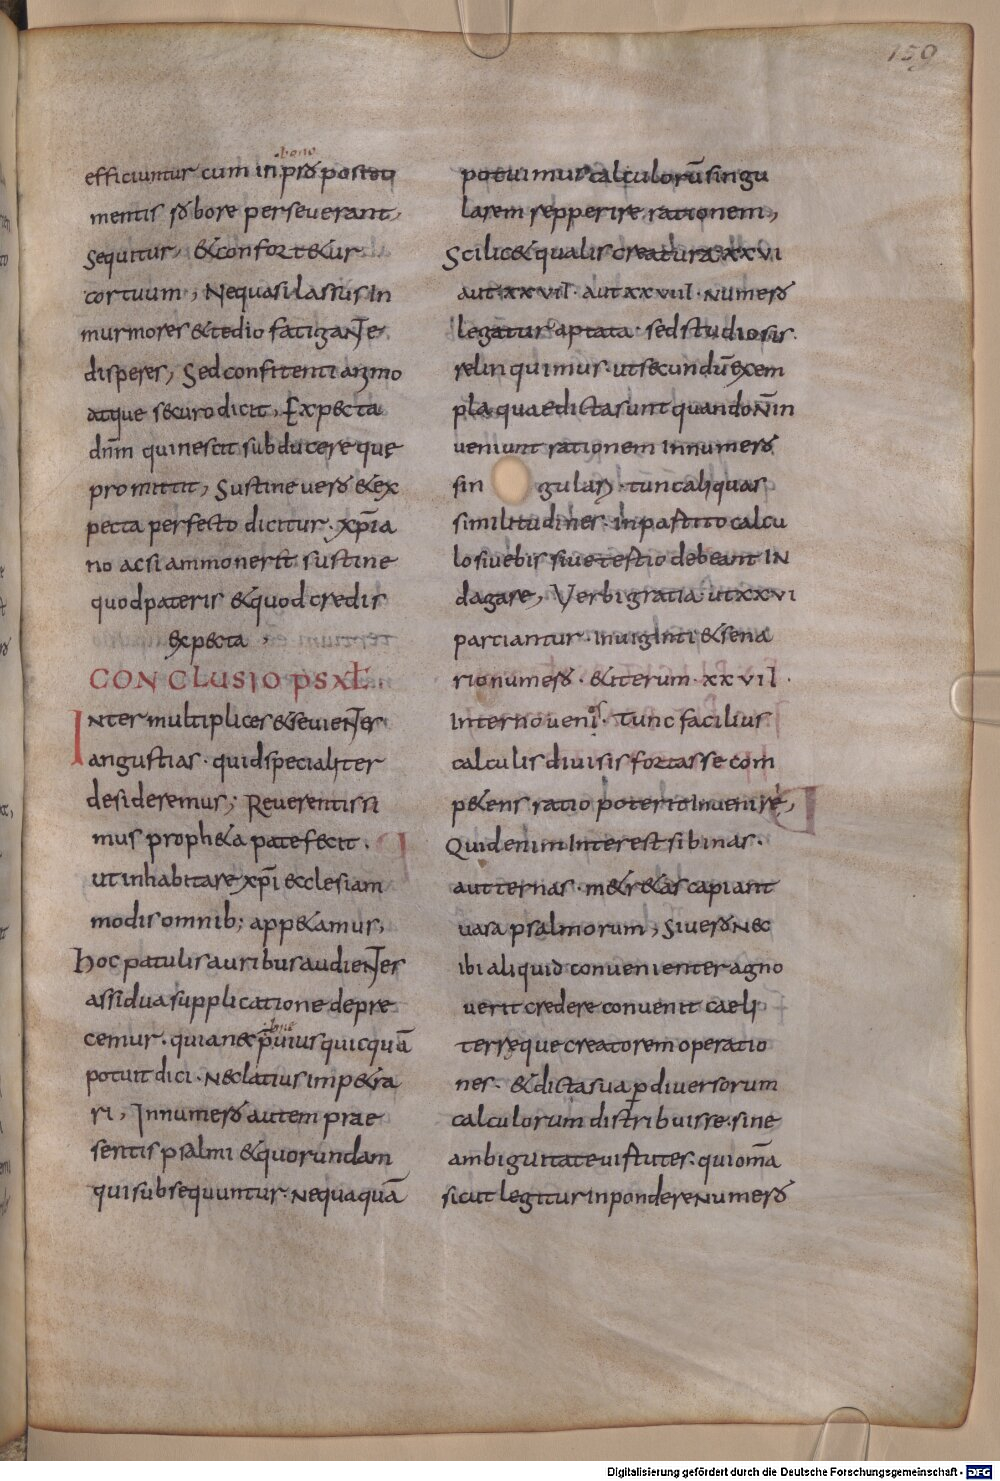 159
bono
efficiuntur cum in prō postou
mentis rōbore perseverant,
Sequitur, &confort&ur
cor tuum, Nequasi lassus in
murmores &tedio fatigante
disperes, Sed confitenti animo
atque securo dicit, Expecta
dnm̄ qui nescit subducere que
promittit, Sustine verō &ex
pecta perfecto dicitur. xp̄ia
no ac si ammonerit sustine
quod pateris &quod credis
expecta,
CONCLUSIO PS XL
Inter multiplices &sevientes
angustias. quid specialiter
desideremus; Reverentissi
mus proph&a patefecit.
ut inhabitare xp̄i ecclesiam
modis omnib; app&amus,
hoc patulis auribus audientes
assidua supplicatione depre
cemur. quia nec p̄vius quicquā
potuit dici. Nec latius imp&ra
ri, In numerō autem prae
sentis psalmi &quorundam
qui subsequuntur. Nequaquā
potuimus calculorū singu
larem repperire rationem,
Scilic& qualis creatura XXVI
aut XXVII. aut XXVIII. numerō
legatur aptata. sed studiosis.
relinquimus. ut secundū exem
pla quae dicta sunt quando n̄ in
veniunt rationem In numerō
sin gulari. tunc aliquas
similitudines. in partito calcu
lo sive bis sive tertio debeant in
dagare, Verbi gratia. ut XXVI
partiantur. in viginti &sena
rio numerō. &iterum. XXVII.
In terno veni. tunc facilius
calculis divisis fortasse com
p&ens ratio poterit invenire,
Quid enim interest si binas.
aut ternas. m&r&as capiant
vasa psalmorum, Si verō nec
ibi aliquid convenienter agno
verit credere convenit caeli
terreque creatorem operatio
nes. &dicta sua p diversorum
calculorum distribuisse. sine
ambiguitate vistutes. qui omā
sicut legitur in pondere numerō
Digitalisierung gefördert durch die Deutsche Forschungsgemeinschaft - DFG